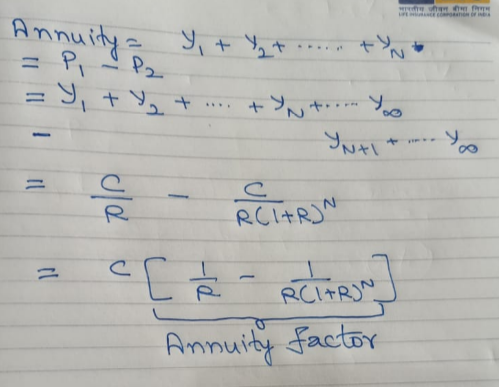 भारतीय जीवन बीमा निगम
LIFE INSURANCE CORPORATION OF INDIA
Annuity = y₁ + y₂ + ...... + y_N.
= P₁ - P₂
= y₁ + y₂ + .... + y_N + ..... y_∞
- y_{N+1} + ..... y_∞
= C/R - C/R(1+R)^N
= C [ 1/R - 1/R(1+R)^N ]
Annuity factor